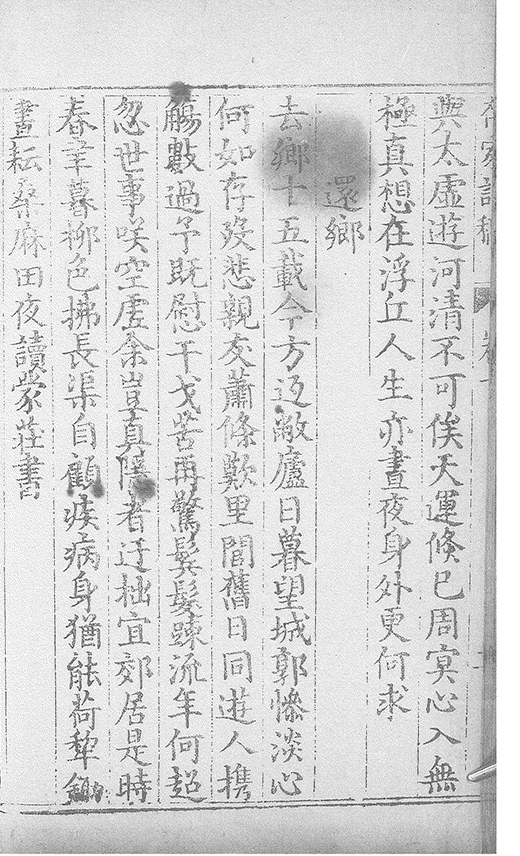 與太虛遊河清不可俟天運倏已周冥心入無
極真想在浮丘人生亦晝夜身外更何求
還鄉
去鄉十五載今方返敝廬日暮望城郭慘淡心
何如存歿悲親友蕭條歎里閭舊日同遊人携
觴數過予既慰干戈苦再驚鬢髮踈流年何超
忽世事咲空虛余豈真隱者迂拙宜郊居是時
春聿暮柳色拂長渠自顧疾病身猶能荷犂鋤
晝耘桑麻田夜讀蒙莊書